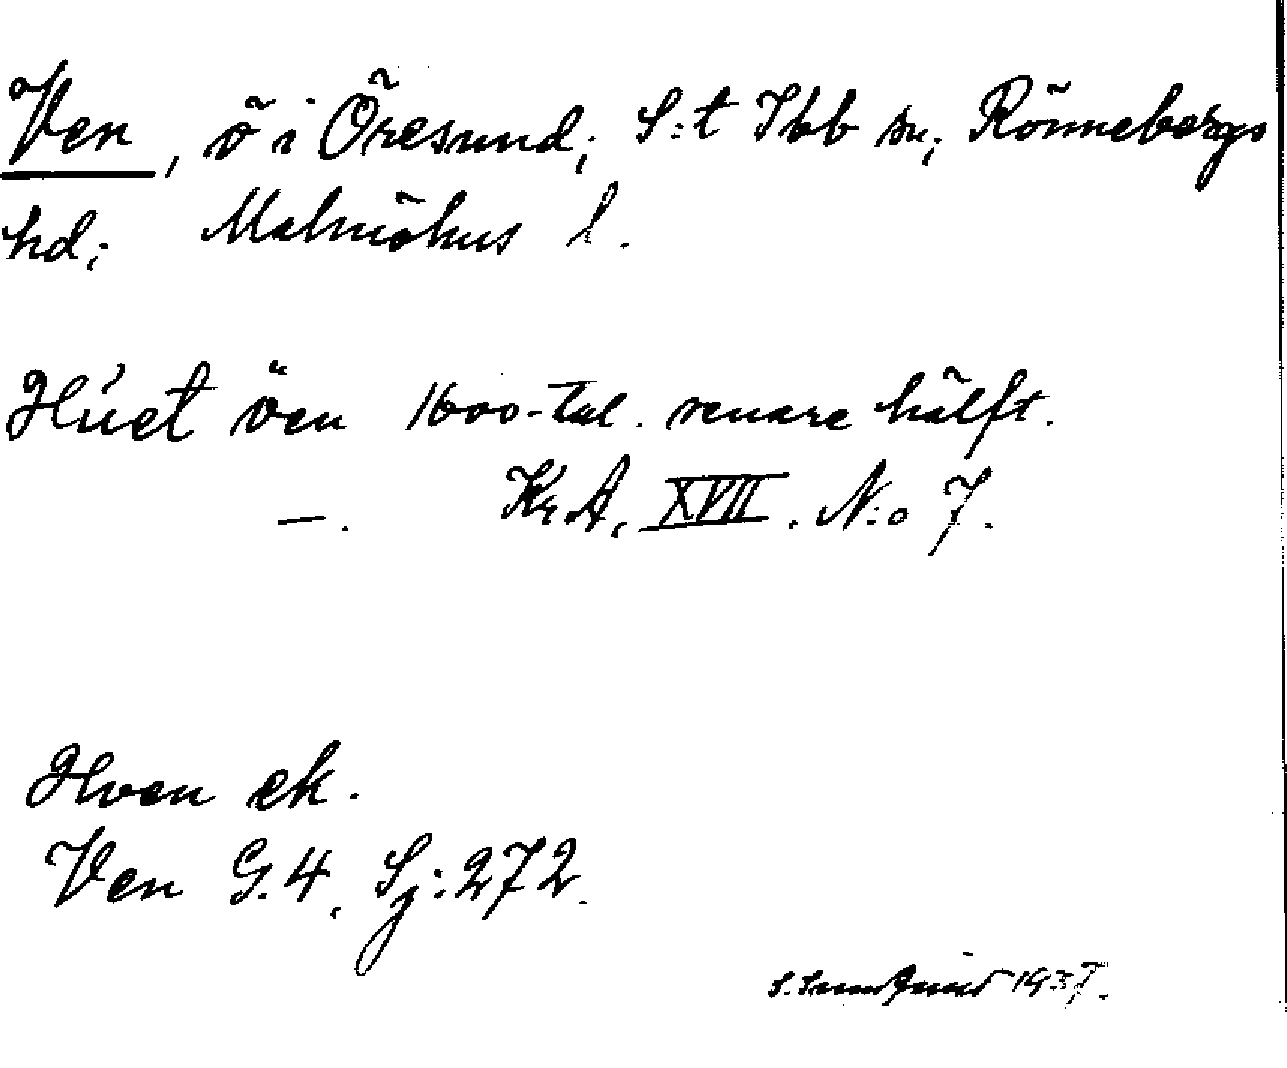 Ven, ö i Öresund; S:t Ibb sn; Rönnebergs
hd; Malmöhus l.
Húet ön 1600-tal. senare hälft.
—. Kr.A. XVII. N:o 7.
Hven ek.
Ven G.4, Sj:272.
1937.